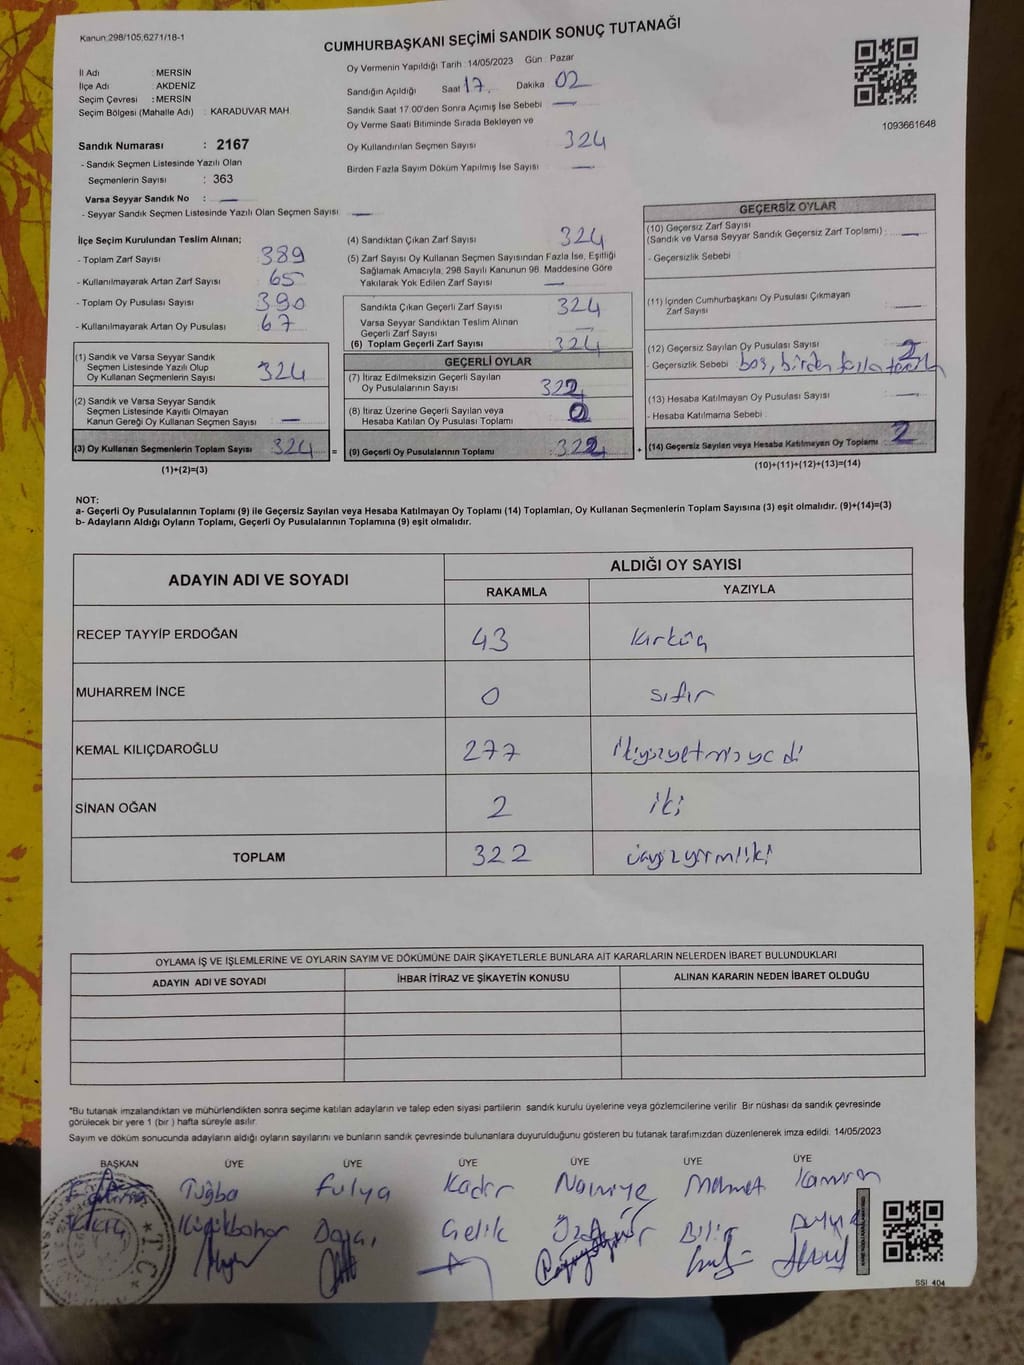 Kanun:298/105,6271/18-1
CUMHURBAŞKANI SEÇİMİ SANDIK SONUÇ TUTANAĞI
İl Adı : MERSİN
İlçe Adı : AKDENİZ
Seçim Çevresi : MERSİN
Seçim Bölgesi (Mahalle Adı) : KARADUVAR MAH.
Oy Vermenin Yapıldığı Tarih : 14/05/2023 Gün : Pazar
Sandığın Açıldığı Saat 17. Dakika 02
Sandık Saat 17.00'den Sonra Açımış İse Sebebi —
Oy Verme Saati Bitiminde Sırada Bekleyen ve
Oy Kullandırılan Seçmen Sayısı 324
Birden Fazla Sayım Döküm Yapılmış İse Sayısı —
1093661648
Sandık Numarası : 2167
- Sandık Seçmen Listesinde Yazılı Olan
Seçmenlerin Sayısı : 363
Varsa Seyyar Sandık No : —
- Seyyar Sandık Seçmen Listesinde Yazılı Olan Seçmen Sayısı —
İlçe Seçim Kurulundan Teslim Alınan;
- Toplam Zarf Sayısı 389
- Kullanılmayarak Artan Zarf Sayısı 65
- Toplam Oy Pusulası Sayısı 390
- Kullanılmayarak Artan Oy Pusulası 67
(1) Sandık ve Varsa Seyyar Sandık
Seçmen Listesinde Yazılı Olup
Oy Kullanan Seçmenlerin Sayısı 324
(2) Sandık ve Varsa Seyyar Sandık
Seçmen Listesinde Kayıtlı Olmayan
Kanun Gereği Oy Kullanan Seçmen Sayısı —
(3) Oy Kullanan Seçmenlerin Toplam Sayısı 324 =
(1)+(2)=(3)
(4) Sandıktan Çıkan Zarf Sayısı 324
(5) Zarf Sayısı Oy Kullanan Seçmen Sayısından Fazla İse, Eşitliği
Sağlamak Amacıyla, 298 Sayılı Kanunun 98. Maddesine Göre
Yakılarak Yok Edilen Zarf Sayısı —
Sandıkta Çıkan Geçerli Zarf Sayısı 324
Varsa Seyyar Sandıktan Teslim Alınan
Geçerli Zarf Sayısı —
(6) Toplam Geçerli Zarf Sayısı 324
GEÇERLİ OYLAR
(7) İtiraz Edilmeksizin Geçerli Sayılan
Oy Pusulalarının Sayısı 322
(8) İtiraz Üzerine Geçerli Sayılan veya
Hesaba Katılan Oy Pusulası Toplamı 0
(9) Geçerli Oy Pusulalarının Toplamı : 322 +
GEÇERSİZ OYLAR
(10) Geçersiz Zarf Sayısı
(Sandık ve Varsa Seyyar Sandık Geçersiz Zarf Toplamı) : —
- Geçersizlik Sebebi
(11) İçinden Cumhurbaşkanı Oy Pusulası Çıkmayan
Zarf Sayısı —
(12) Geçersiz Sayılan Oy Pusulası Sayısı 2
- Geçersizlik Sebebi boş, birden fazla
(13) Hesaba Katılmayan Oy Pusulası Sayısı —
- Hesaba Katılmama Sebebi :
(14) Geçersiz Sayılan veya Hesaba Katılmayan Oy Toplamı 2
(10)+(11)+(12)+(13)=(14)
NOT:
a- Geçerli Oy Pusulalarının Toplamı (9) ile Geçersiz Sayılan veya Hesaba Katılmayan Oy Toplamı (14) Toplamları, Oy Kullanan Seçmenlerin Toplam Sayısına (3) eşit olmalıdır. (9)+(14)=(3)
b- Adayların Aldığı Oyların Toplamı, Geçerli Oy Pusulalarının Toplamına (9) eşit olmalıdır.
ADAYIN ADI VE SOYADI ALDIĞI OY SAYISI
RAKAMLA YAZIYLA
RECEP TAYYİP ERDOĞAN 43 kırküç
MUHARREM İNCE 0 sıfır
KEMAL KILIÇDAROĞLU 277 ikiyüzyetmişyedi
SİNAN OĞAN 2 iki
TOPLAM 322 üçyüzyirmiiki
OYLAMA İŞ VE İŞLEMLERİNE VE OYLARIN SAYIM VE DÖKÜMÜNE DAİR ŞİKAYETLERLE BUNLARA AİT KARARLARIN NELERDEN İBARET BULUNDUKLARI
ADAYIN ADI VE SOYADI İHBAR İTİRAZ VE ŞİKAYETİN KONUSU ALINAN KARARIN NEDEN İBARET OLDUĞU
*Bu tutanak imzalandıktan ve mühürlendikten sonra seçime katılan adayların ve talep eden siyasi partilerin sandık kurulu üyelerine veya gözlemcilerine verilir. Bir nüshası da sandık çevresinde
görülecek bir yere 1 (bir ) hafta süreyle asılır.
Sayım ve döküm sonucunda adayların aldığı oyların sayılarını ve bunların sandık çevresinde bulunanlara duyurulduğunu gösteren bu tutanak tarafımızdan düzenlenerek imza edildi. 14/05/2023
BAŞKAN ÜYE ÜYE ÜYE ÜYE ÜYE ÜYE
Fatma Tuğba Fulya Kadir Naciye Mehmet Kamran
Küçükbahar Çelik Bilir
T.C.
SSI_404